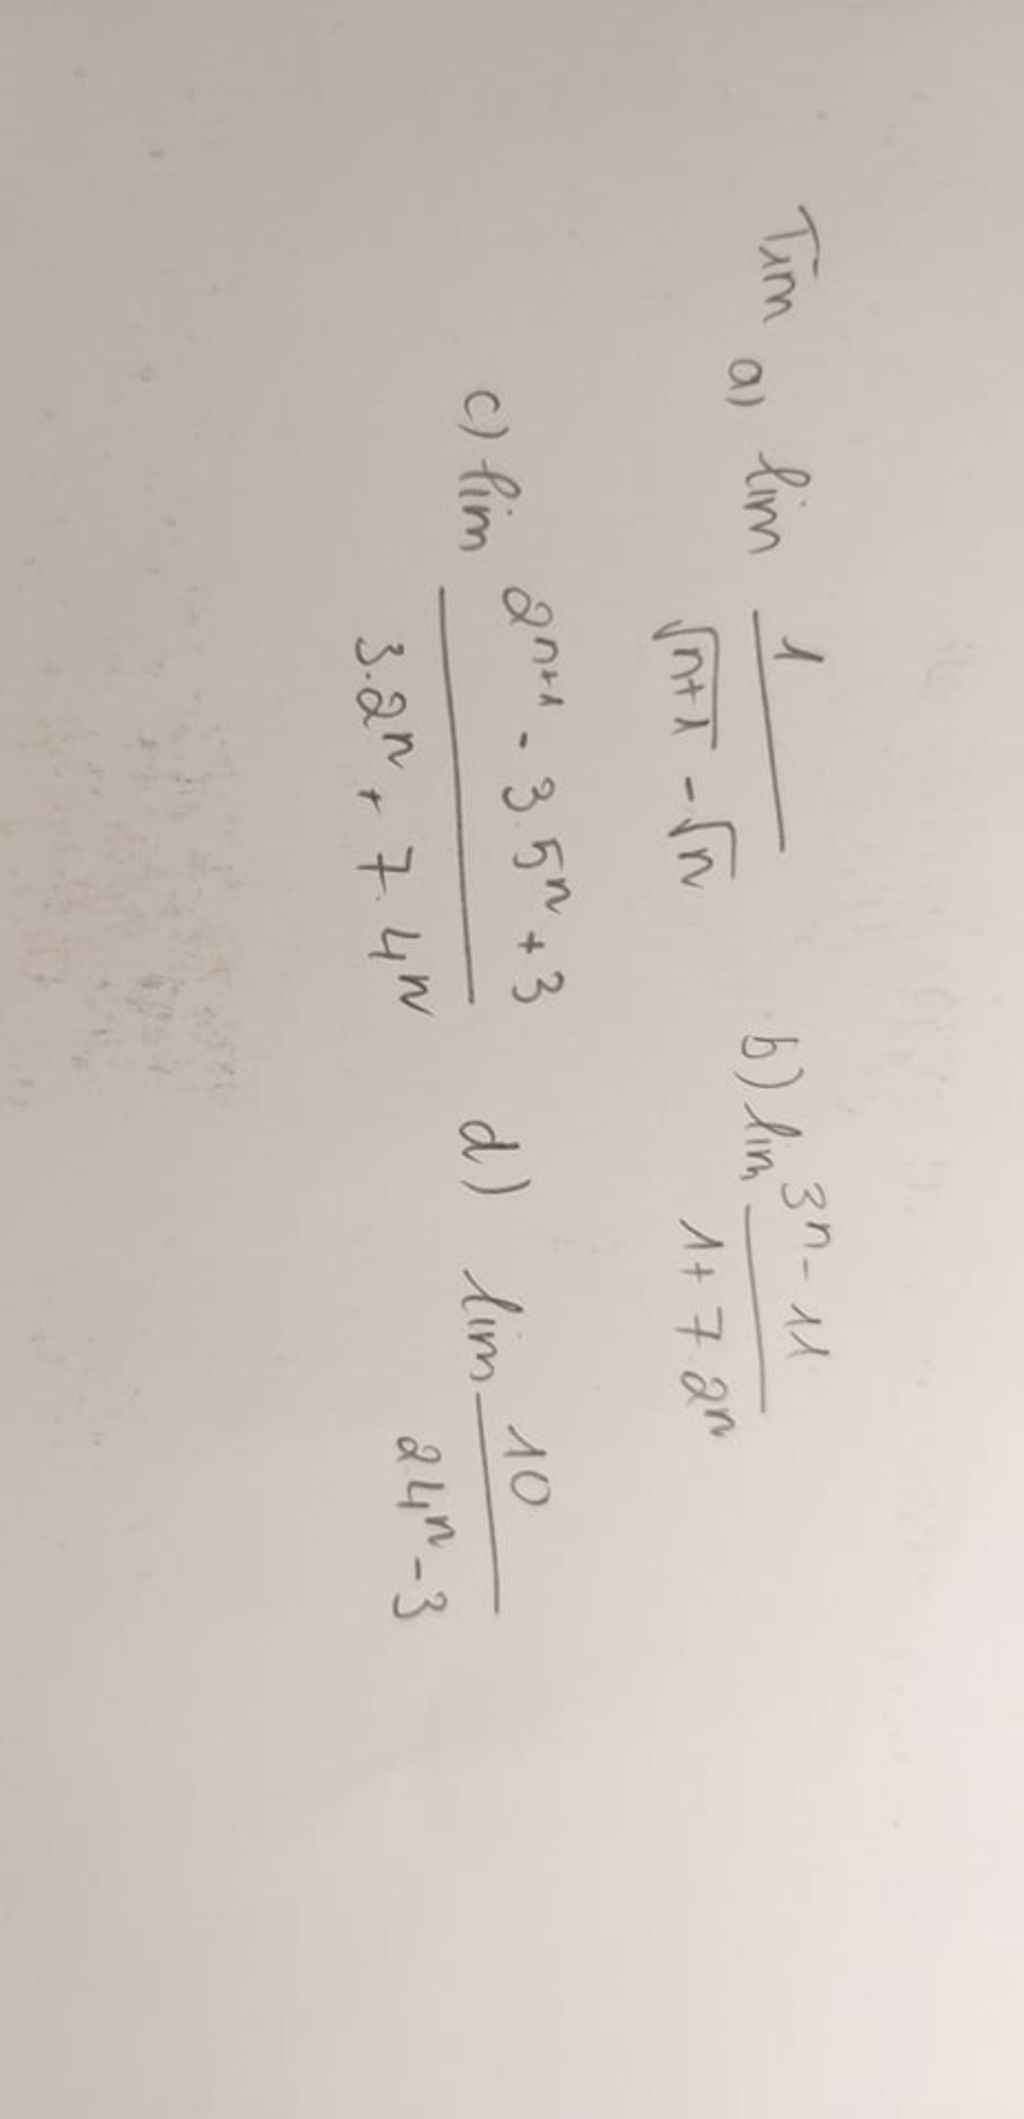 Tìm a) lim 1/(√(n+1) - √n) b) lim (3ⁿ - 11)/(1 + 7.2ⁿ)
c) lim (2ⁿ⁺¹ - 3.5ⁿ + 3)/(3.2ⁿ + 7.4ⁿ) d) lim 10/(2.4ⁿ - 3)